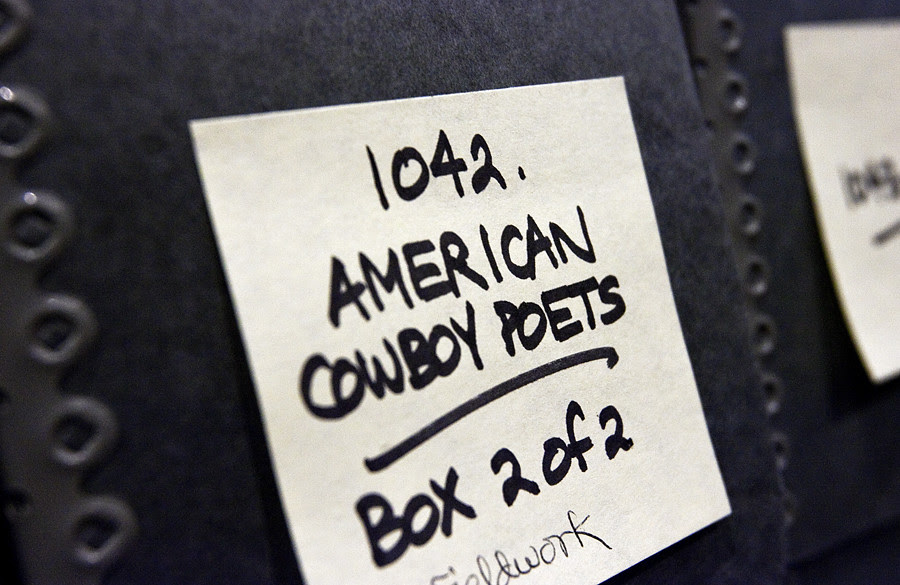 1042.
AMERICAN
COWBOY POETS
BOX 2 of 2
Fieldwork